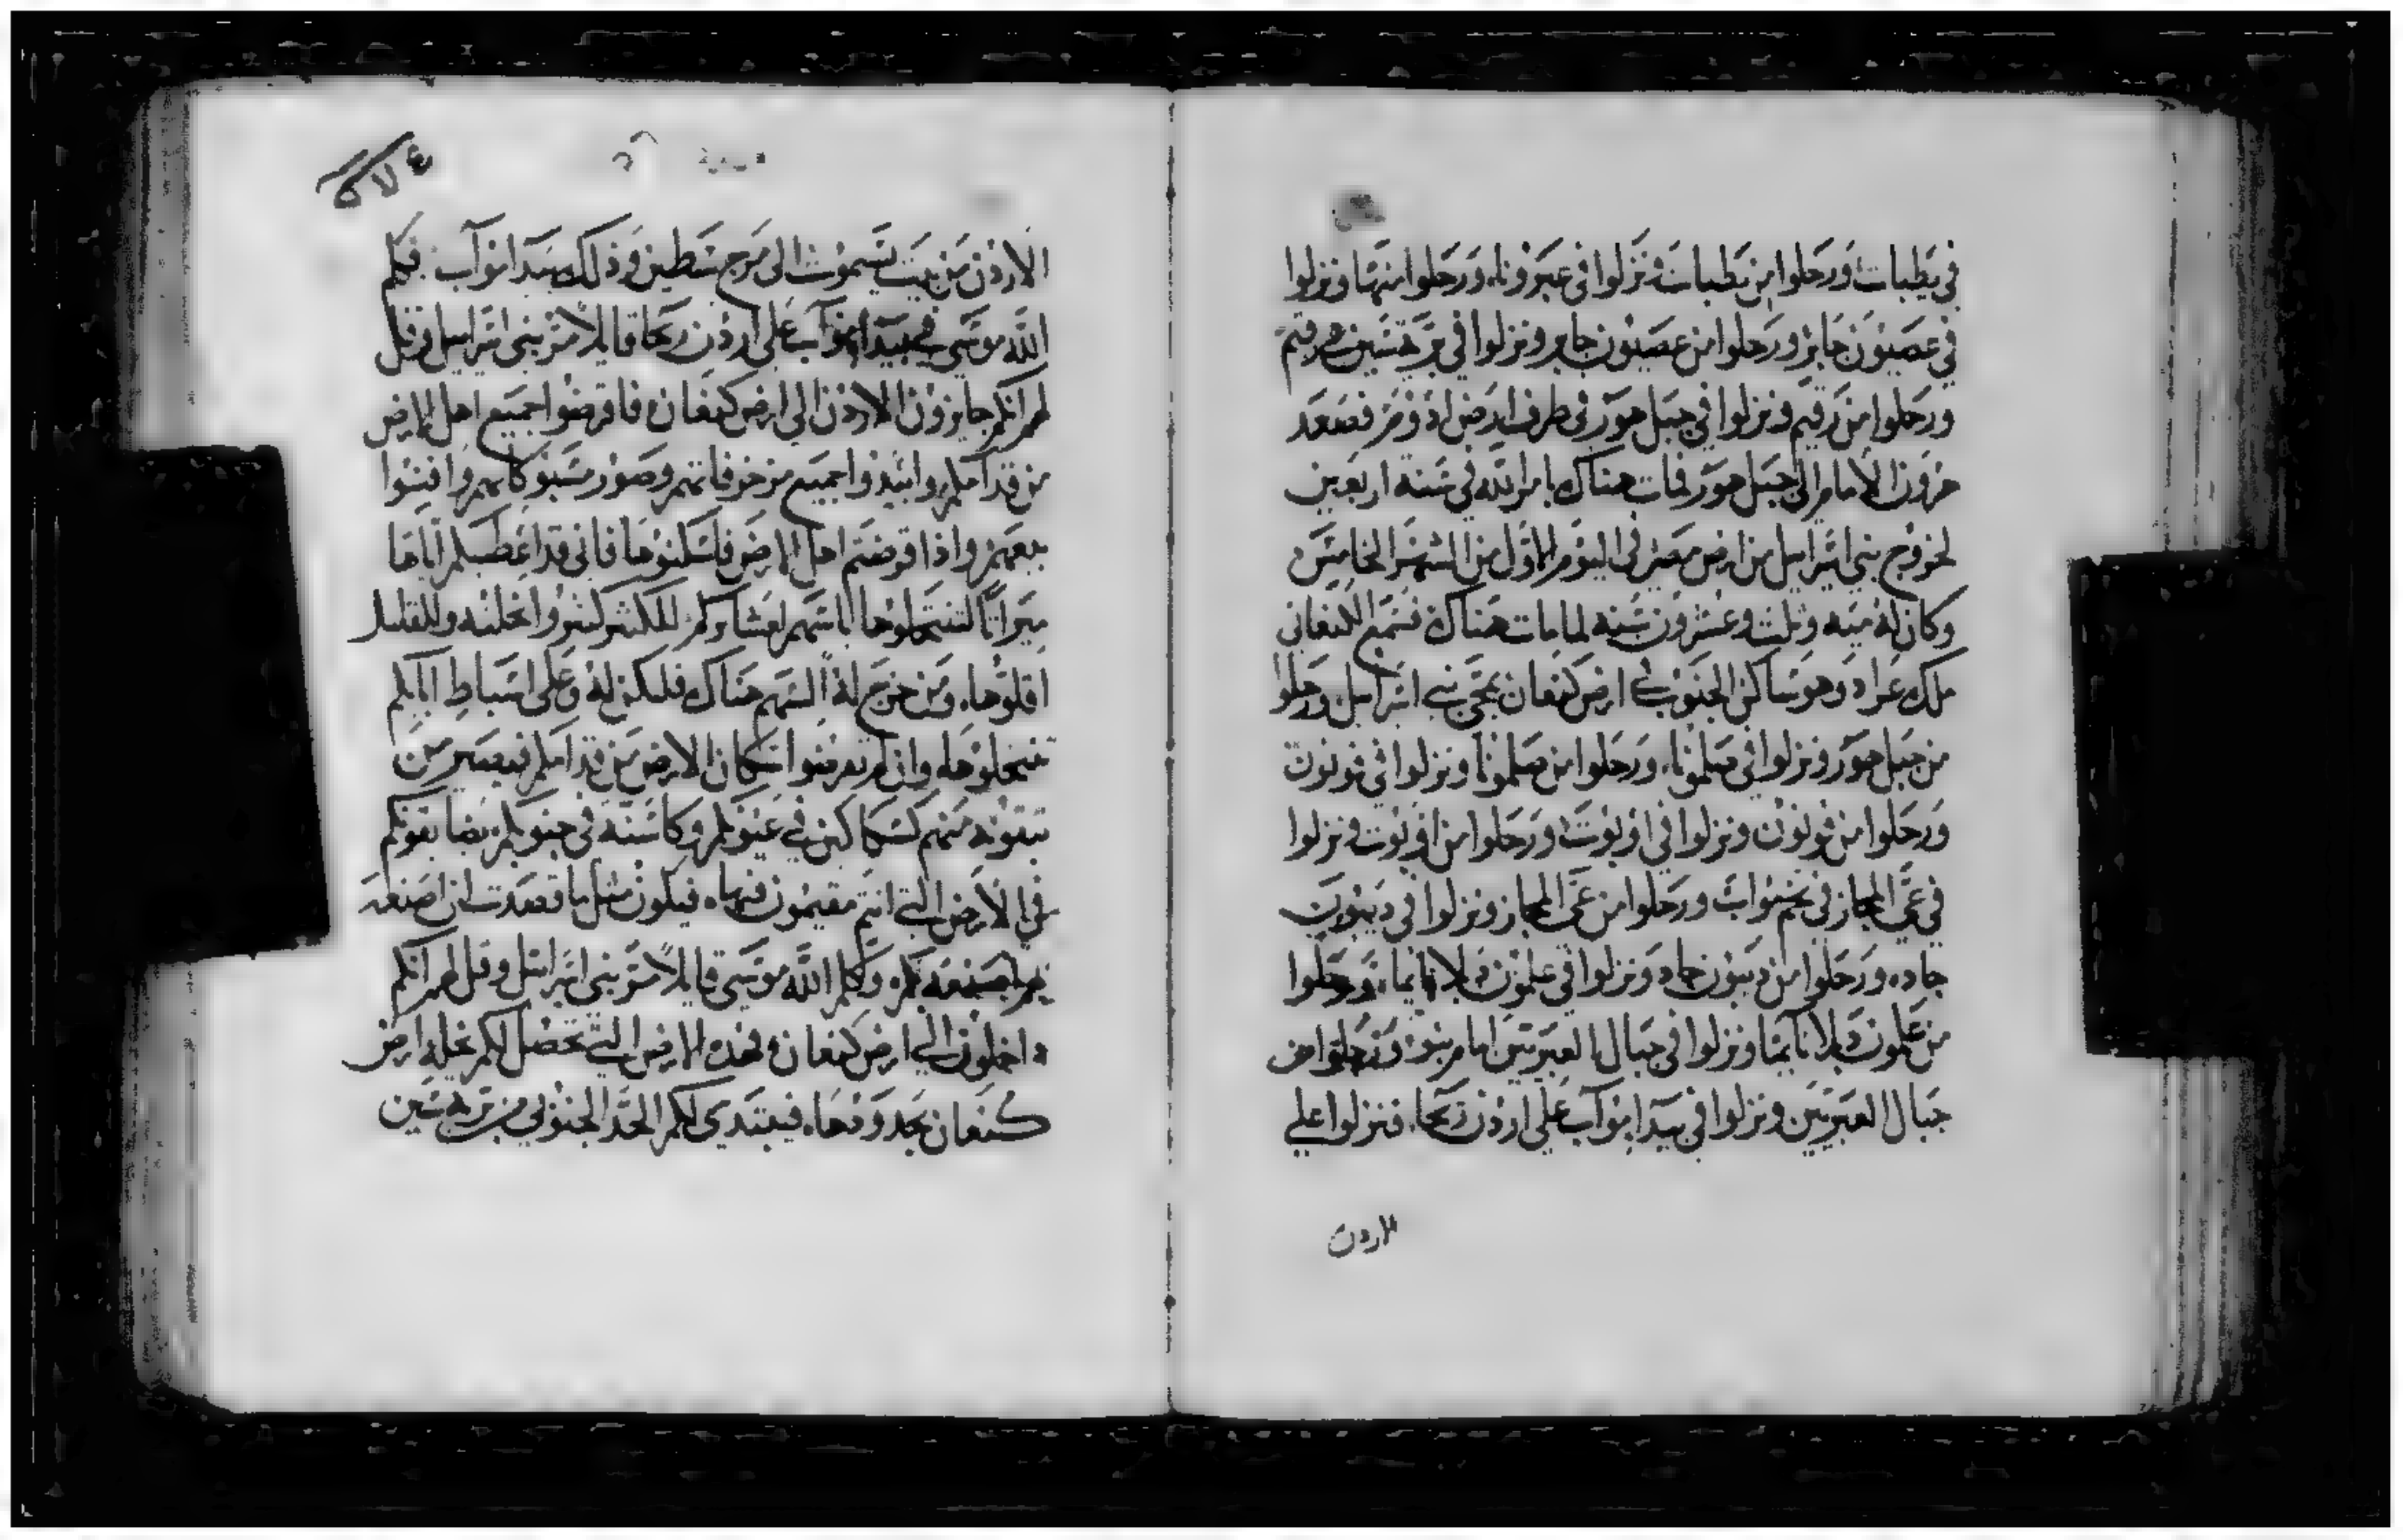 في يطبات ورحلوا من يطبات ونزلوا في عبرونا، ورحلوا منها ونزلوا
في عصيون جابر ورحلوا من عصيون جابر ونزلوا في برّ صين هي رقيم
ورحلوا من رقيم ونزلوا في جبل هور في طرف ارض ادوم فصعد
هرون الامام الى جبل هور فمات هناك بامر الله في سنه اربعين
لخروج بني اسرايل من ارض مصر في اليوم الاول من الشهر الخامس
وكان له ميه وثلث وعشرون سنه لما مات هناك فسمع الكنعاني
ملك عراد وهو ساكن الجنوب في ارض كنعان بمجي بني اسرايل ورحلوا
من جبل هور ونزلوا في صلمونا، ورحلوا من صلمونا ونزلوا في فونون
ورحلوا من فونون ونزلوا في اوبوت ورحلوا من اوبوت ونزلوا
في عيّ المجاز في تخم مواب ورحلوا من عيّ المجاز ونزلوا في ديبون
جاد، ورحلوا من ديبون جاد ونزلوا في علمون دبلاتايما، ورحلوا
من علمون دبلاتايما ونزلوا في جبال العبريين امام نبو، ورحلوا من
جبال العبريين ونزلوا في بيدا مواب على اردن ريحا، فنزلوا على
الاردن
الاردن من بيت يسموث الى مرج شطين وذلك بيدا مواب فكلم
الله موسى في بيدا مواب على اردن ريحا قايلاً مر بني اسرايل وقل
لهم انكم جايزون الاردن الى ارض كنعان فاقرضوا جميع اهل الارض
من قدامكم وابيدوا جميع مزخرفاتهم وصور مسبوكاتهم وافنوا
بيعهم واذا قرضتم اهل الارض فاسكنوها فاني قد اعطيتكم اياها
ميراثا لتنتحلوها باسهم لعشايركم للكثير كثروا نحلته وللقليل
اقلوها، ومن خرج له السهم هناك فليكن له وعلى اسباط ابايكم
تنتحلوها، وان لم تقرضوا سكان الارض من قدامكم فيصير من
تبقونه منهم كسكاكين في عيونكم وكاسنه في جنوبكم يضايقونكم
في الارض التي انتم مقيمون فيها، فيكون مثل ما قصدت ان اصنعه
بهم اصنعه بكم، وكلم الله موسى قايلاً مر بني اسرايل وقل لهم انكم
داخلون الى ارض كنعان وهذه الارض التي تحصل لكم نحله ارض
كنعان بحدودها، فيبتدي لكم الحد الجنوبي من برية صين